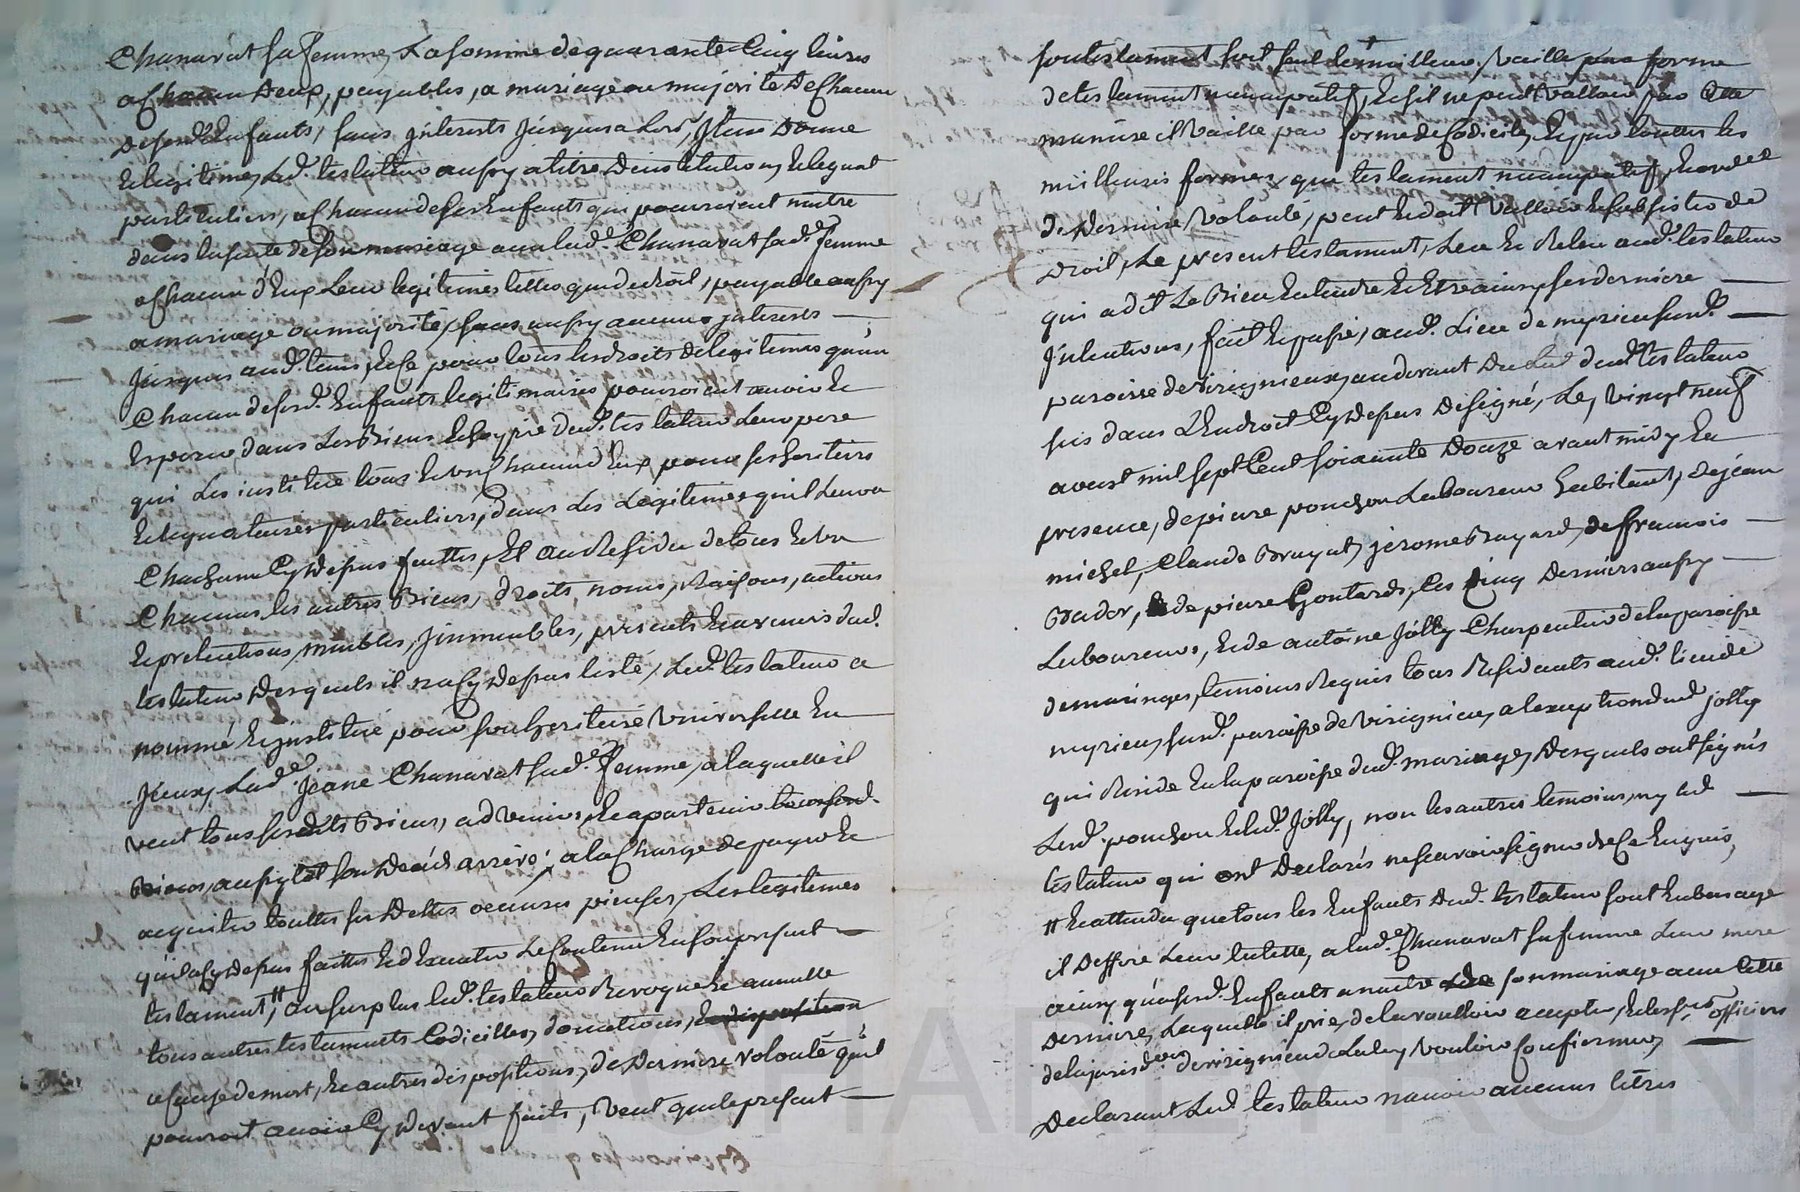 Chanavat sa femme, La somme de quarante Cinq livres
a Chacun Deux, payables, a mariage ou majorité De Chacun
De ses d. Enfants, sans jnterests jusques a lors, jtem Donne
Et legitime, Led. testateur aussy a titre Dinstitution, Et legat
particuliers, a Chacun de ses Enfants qui pourroient naitre
dans la suite de son mariage avec lad.e Chanavat sad.e femme
a Chacun d'Eux Leur legitimes telles que de droit, payable aussy
a mariage ou majorité, sans aussy aucuns jnterests —
jusques aud. tems, Et Ce pour tous les droits de legitimes qu'un
Chacun de sesd. Enfants legitimaires pourroient avoir Et
Esperer dans Les Biens Et hoyrie dud. testateur Leur pere
qui Les institue tous Et un Chacun d'Eux pour ses heritiers
Et legataires particuliers, dans Les Legitimes qu'il Leur a
Chachune Cy Depus faittes, Et au Residu de tous Et un
Chacuns les autres Biens, droits, noms, Raisons, actions
Et pretentions, meubles, jmmeubles, presents Et avenirs dud.
testateur Desquels il n'a Cy Depus testé, Led. testateur a
nommé Et jnstitué pour son heritiere Universelle En
jceux, Lad.e jeane Chanavat sad.e femme, a laquelle il
veut tous sesdits Biens, advenir, Et apartenir tous sesd.
Biens, aussytot son Decés arrivé; a la Charge de payer Et
acquitter touttes ses Dettes oeuvres pieuses, Les legitimes
qu'il a Cy Depus faittes Et d'Executer Le Contenu En son present —
testament, # au surplus led. testateur Revoque Et annulle
tous autres testaments Codicilles, donations,
a Cause de mort, Et autres dispositions, de Derniere volonté qu'il
pourroit avoir Cy Devant faits, Veut que le present —
son testament soit seul Le meilleur, Vaille par forme
de testament nuncupatif, Et s'il ne peut valloir par Cette
maniere il Vaille par forme de Codicile, Et par touttes les
meilleures formes, que testament nuncupatif, Et
de Derniere Volonté, peut Et doit Valloir Et subsister de
Droit, Le present testament, Leu Et Releu aud. testateur
qui a dit Le Bien Entendre Et Etre ainsy ses derniere —
jntentions, fait Et passé, aud. Lieu de myrieu susd.e —
paroisse de virignieux, au devant Du dud. testateur
sis dans L'Endroit Cy Depus Designé, Le, Vingt neuf
aoust mil sept Cent soixante Douze avant midy En
presence, de pierre ponchon Laboureur habitant, de jean
michel, Claude Bruyat, jerome Brayard, de francois —
Bador, Et de pierre Goutard, les Cinq Derniers aussy —
Laboureurs, Et de antoine jolly Charpentier de la paroisse
de maringes, temoins Requis tous Residants aud. lieu de
myrieu, susd. paroisse de virignieu, a l'exception dud jolly
qui Reside En la paroisse dud. maringes, Desquels ont signés
Led. ponchon Et led. jolly, non les autres temoins, ny led —
testateur qui ont Declarés ne scavoir signer de Ce Enquis,
# Et attendu que tous les Enfants Dud. testateur sont En bas age
il Deffere Leur tutelle, a lad.e Chanavat sa femme Leur mere
ainsy qu'a sesd. Enfants a naitre de son mariage avec Cette
Derniere, Laquelle il prie, de la voulloir accepter, Et les s.rs officiers
de la jurisd.on de virignieu de La luy Vouloir Confirmer, —
Declarant Led. testateur n'avoir aucuns titres